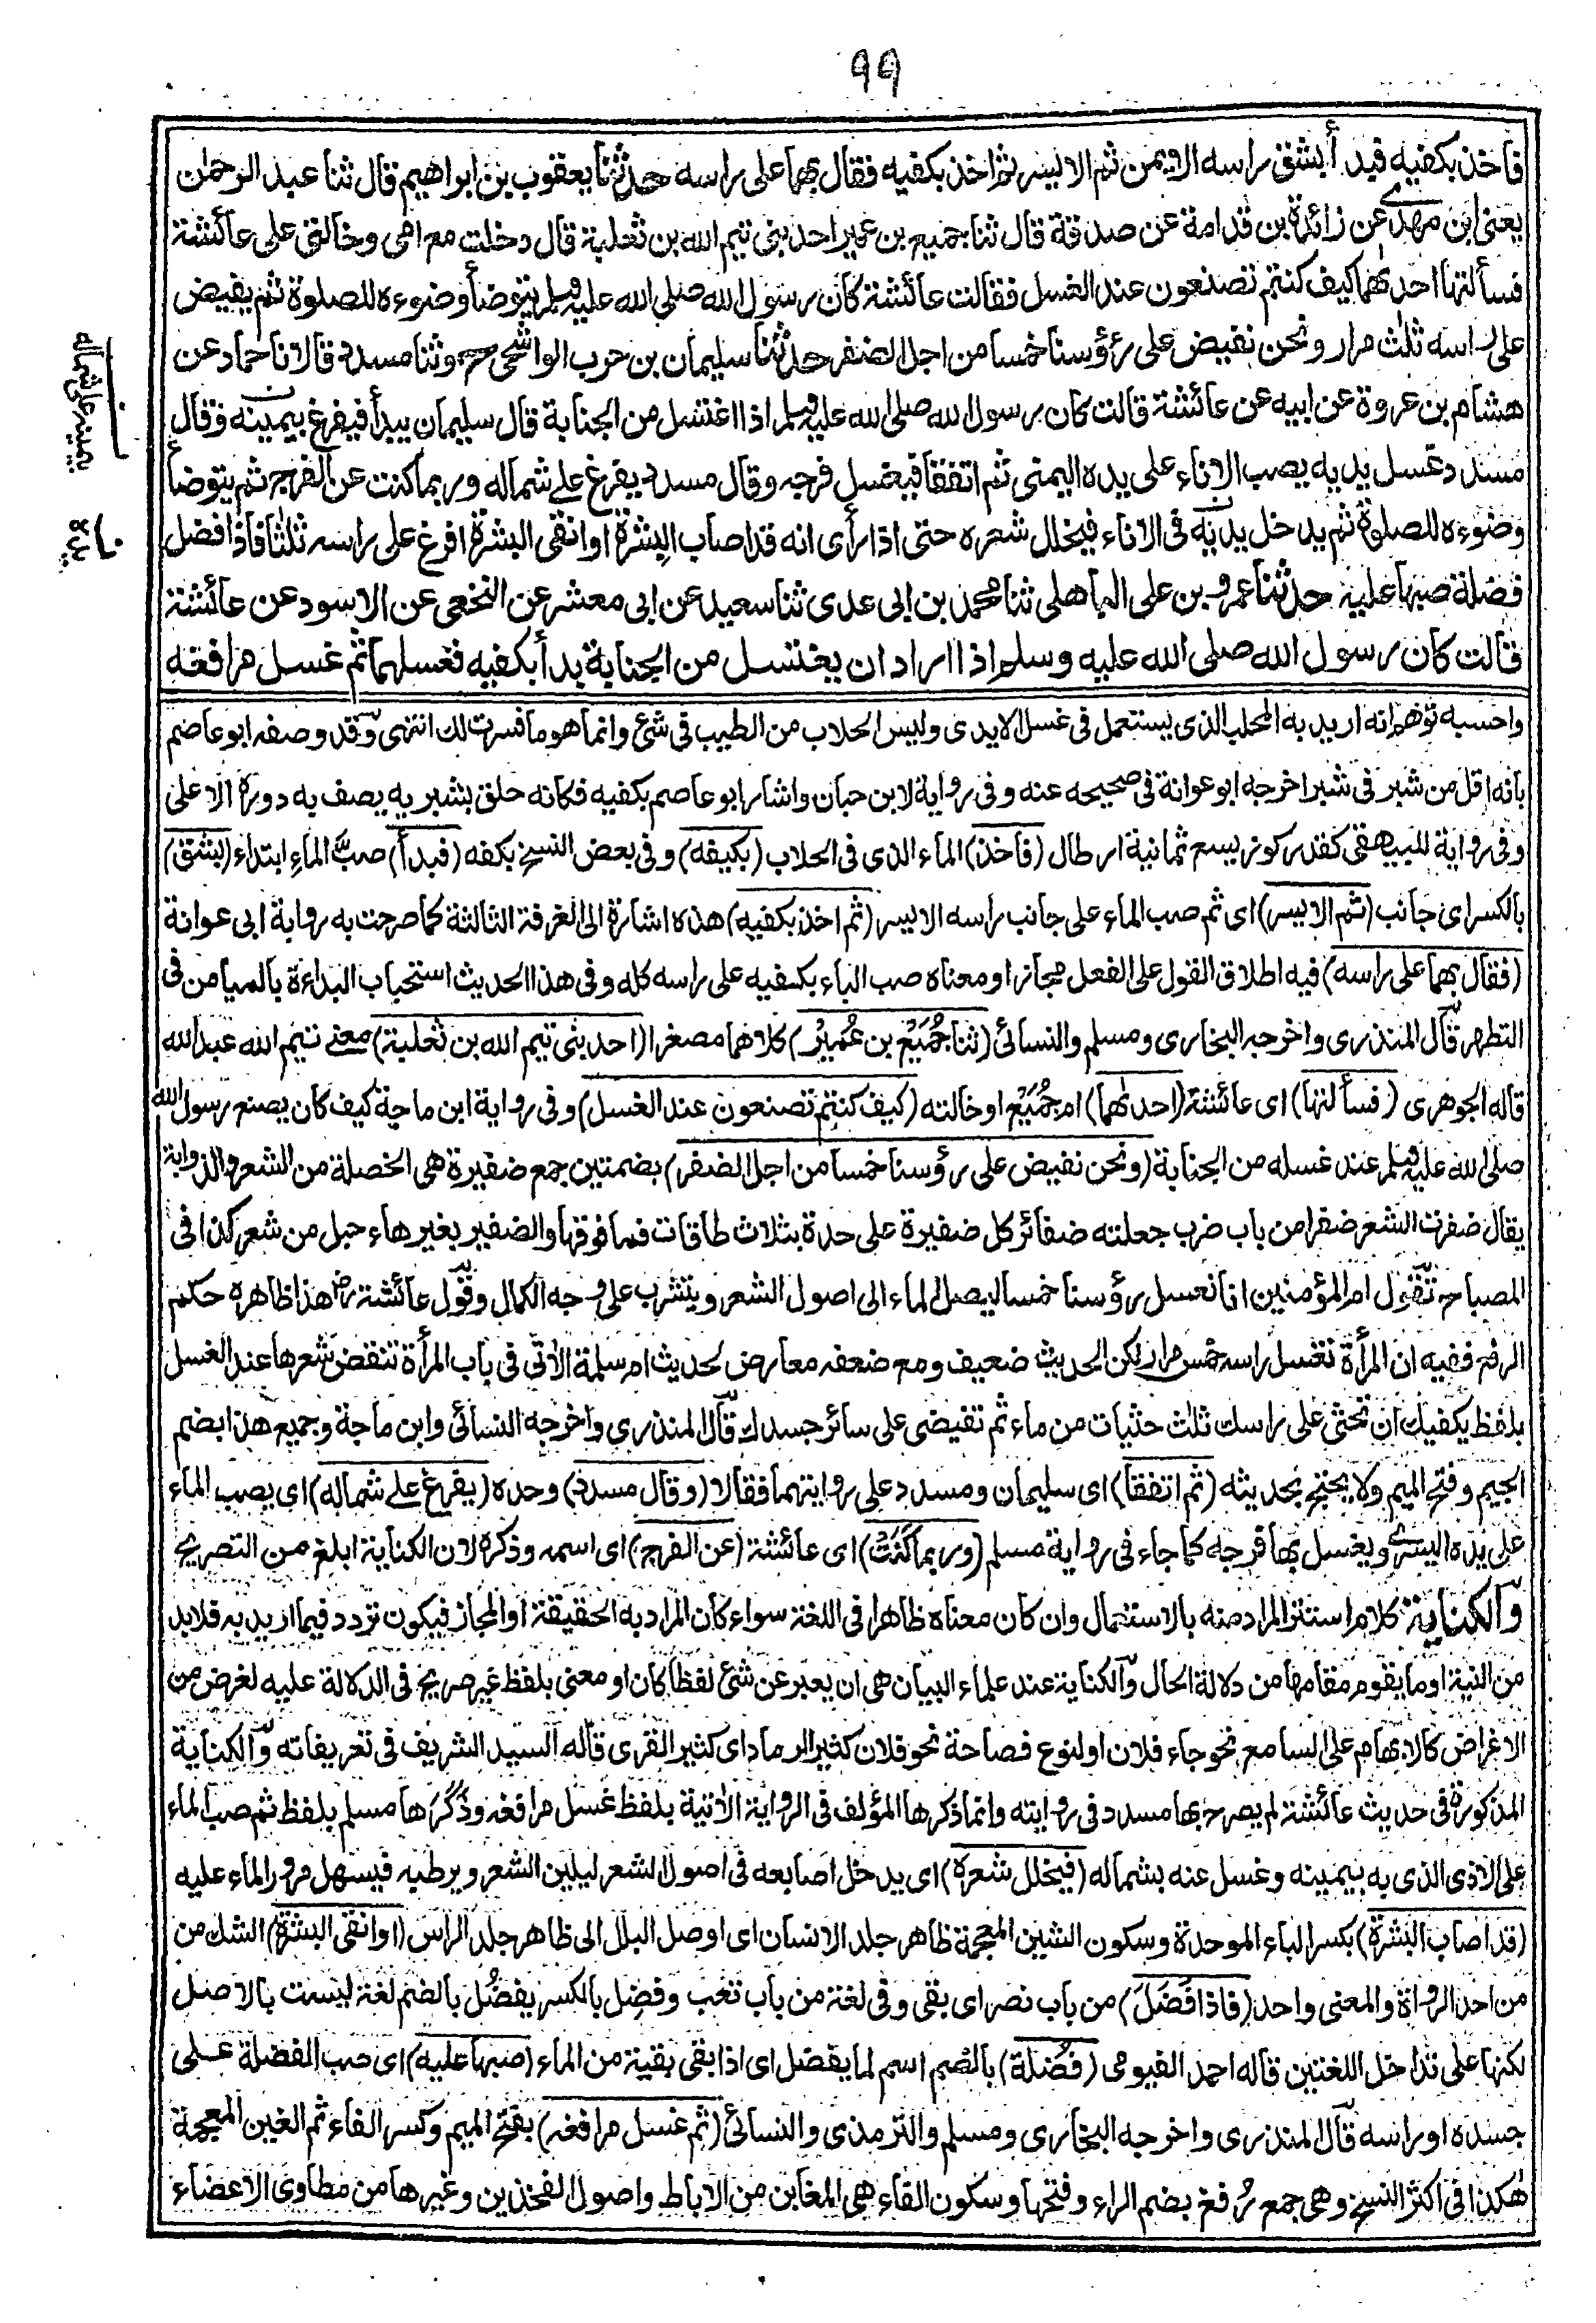 ٩٩
فاخذ بكفيه فبدأ بشق راسه الايمن ثم الايسر ثم اخذ بكفيه فقال بهما على راسه حدثنا يعقوب بن ابراهيم قال ثنا عبد الرحمٰن
يعنى ابن مهدى عن زائدة بن قدامة عن صدقة قال ثنا جميع بن عمير احد بنى تيم الله بن ثعلبة قال دخلت مع امى وخالتى على عائشة
فسألتها احدٰهما كيف كنتم تصنعون عند الغسل فقالت عائشة كان رسول الله صلى الله عليه وسلم يتوضأ وضوءه للصلوة ثم يفيض
على راسه ثلٰث مرار ونحن نفيض على رؤسنا خمسا من اجل الضفر حدثنا سليمان بن حرب الواشحى ح وثنا مسدد قالا نا حماد عن
هشام بن عروة عن ابيه عن عائشة قالت كان رسول الله صلى الله عليه وسلم اذا اغتسل من الجنابة قال سليمان يبدأ فيفرغ بيمينه وقال
مسدد غسل يديه يصب الاناء على يده اليمنى ثم اتفقا فيغسل فرجه وقال مسدد يفرغ على شماله وربما كنت عن الفرج ثم يتوضأ
وضوءه للصلوة ثم يدخل يديه فى الاناء فيخلل شعره حتى اذا رأى انه قد اصاب البشرة او انقى البشرة افرغ على راسه ثلٰثا فاذا فضل
فضلة صبها عليه حدثنا عمرو بن على الباهلى ثنا محمد بن ابى عدى ثنا سعيد عن ابى معشر عن النخعى عن الاسود عن عائشة
قالت كان رسول الله صلى الله عليه وسلم اذا اراد ان يغتسل من الجنابة بدأ بكفيه فغسلهما ثم غسل مرافغه
واحسبه توهم انه اريد به المحلب الذى يستعمل فى غسل الايدى وليس الحلاب من الطيب فى شئ وانما هو ما فسرت لك انتهى وقد وصفه ابو عاصم
بانه اقل من شبر فى شبر اخرجه ابو عوانة فى صحيحه عنه وفى رواية لابن حبان واشار ابو عاصم بكفيه فكانه حلق بشبريه يصف به دوره الاعلى
وفى رواية للبيهقى كقدر كوز يسع ثمانية ارطال (فاخذ) الماء الذى فى الحلاب (بكيفه) وفى بعض النسخ بكفه (فبدأ) صب الماء ابتداء (بشق)
بالكسر اى جانب (ثم الايسر) اى ثم صب الماء على جانب راسه الايسر (ثم اخذ بكفيه) هذه اشارة الى الغرفة الثالثة كما صرحت به رواية ابى عوانة
(فقال بهما على راسه) فيه اطلاق القول على الفعل مجازا ومعناه صب الباء بكفيه على راسه كله وفى هذا الحديث استحباب البداءة بالميامن فى
التطهر قال المنذرى واخرجه البخارى ومسلم والنسائى (ثنا جُمَيْع بن عُمَيْر) كلاهما مصغرا (احد بنى تيم الله بن ثعلبة) معنى تيم الله عبد الله
قاله الجوهرى (فسألتها) اى عائشة (احدٰهما) ام جُمَيْع او خالته (كيف كنتم تصنعون عند الغسل) وفى رواية ابن ماجة كيف كان يصنع رسول الله
صلى الله عليه وسلم عند غسله من الجنابة (ونحن نفيض على رؤسنا خمسا من اجل الضفر) بضمتين جمع ضفيرة هى الخصلة من الشعر والذوابة
يقال ضفرت الشعر ضفرا من باب ضرب جعلته ضفائر كل ضفيرة على حدة بثلاث طاقات فما فوقها والضفير بغير هاء حبل من شعر كذا فى
المصباح تقول ام المؤمنين انا نغسل رؤسنا خمسا ليصل الماء الى اصول الشعر ويتشرب على وجه الكمال وقول عائشة رض هذا ظاهره حكم
الرفع ففيه ان المرأة تغسل راسه خمس مرار لكن الحديث ضعيف ومع ضعفه معارض لحديث ام سلمة الآتى فى باب المرأة تنقض شعرها عند الغسل
بلفظ يكفيك ان تحثى على راسك ثلٰث حثيات من ماء ثم تفيضى على سائر جسدك قال المنذرى واخرجه النسائى وابن ماجة وجميع هذا بضم
الجيم وفتح الميم ولا يحتج بحديثه (ثم اتفقا) اى سليمان ومسدد على روايتهما فقالا (وقال مسدد) وحده (يفرغ على شماله) اى يصب الماء
على يده اليسرى ويغسل بها فرجه كما جاء فى رواية مسلم (وربما كَنَتْ) اى عائشة (عن الفرج) اى اسمه وذكره لان الكناية ابلغ من التصريح
والكناية كلام استتر المراد منه بالاستعمال وان كان معناه ظاهرا فى اللغة سواء كان المراد به الحقيقة او المجاز فيكون تردد فيما اريد به فلابد
من النية او ما يقوم مقامها من دلالة الحال والكناية عند علماء البيان هى ان يعبر عن شئ لفظا كان او معنى بلفظ غير صريح فى الدلالة عليه لغرض من
الاغراض كالابهام على السامع نحو جاء فلان او لنوع فصاحة نحو فلان كثير الرماد اى كثير القرى قاله السيد الشريف فى تعريفاته والكناية
المذكورة فى حديث عائشة لم يصرح بها مسدد فى روايته وانما ذكرها المؤلف فى الرواية الآتية بلفظ غسل مرافغه وذَكَرَها مسلم بلفظ ثم صب الماء
على الاذى الذى به بيمينه وغسل عنه بشماله (فيخلل شعره) اى يدخل اصابعه فى اصول الشعر ليلين الشعر ويرطبه فيسهل مرور الماء عليه
(قد اصاب البشرة) بكسر الباء الموحدة وسكون الشين المعجمة ظاهر جلد الانسان اى اوصل البلل الى ظاهر جلد الراس (او انقى البشرة) الشك من
من احد الرواة والمعنى واحد (فاذا فَضَلَ) من باب نصر اى بقى وفى لغة من باب تعب وفضِل بالكسر يفضُل بالضم لغة ليست بالاصل
لكنها على تداخل اللغتين قاله احمد الفيومى (فضلة) بالضم اسم لما يفضل اى اذا بقى بقية من الماء (صبها عليه) اى صب الفضلة على
جسده او راسه قال المنذرى واخرجه البخارى ومسلم والترمذى والنسائى (ثم غسل مرافغه) بفتح الميم وكسر الفاء ثم الغين المعجمة
هٰكذا فى اكثر النسخ وهى جمع رُفغ بضم الراء وفتحها وسكون الفاء هى المغابن من الاباط واصول الفخذين وغيرها من مطاوى الاعضاء